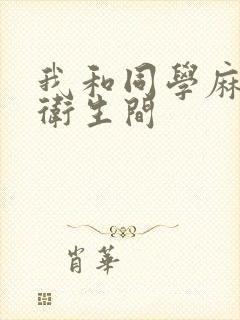 我和同學麻
衛生間
肖華